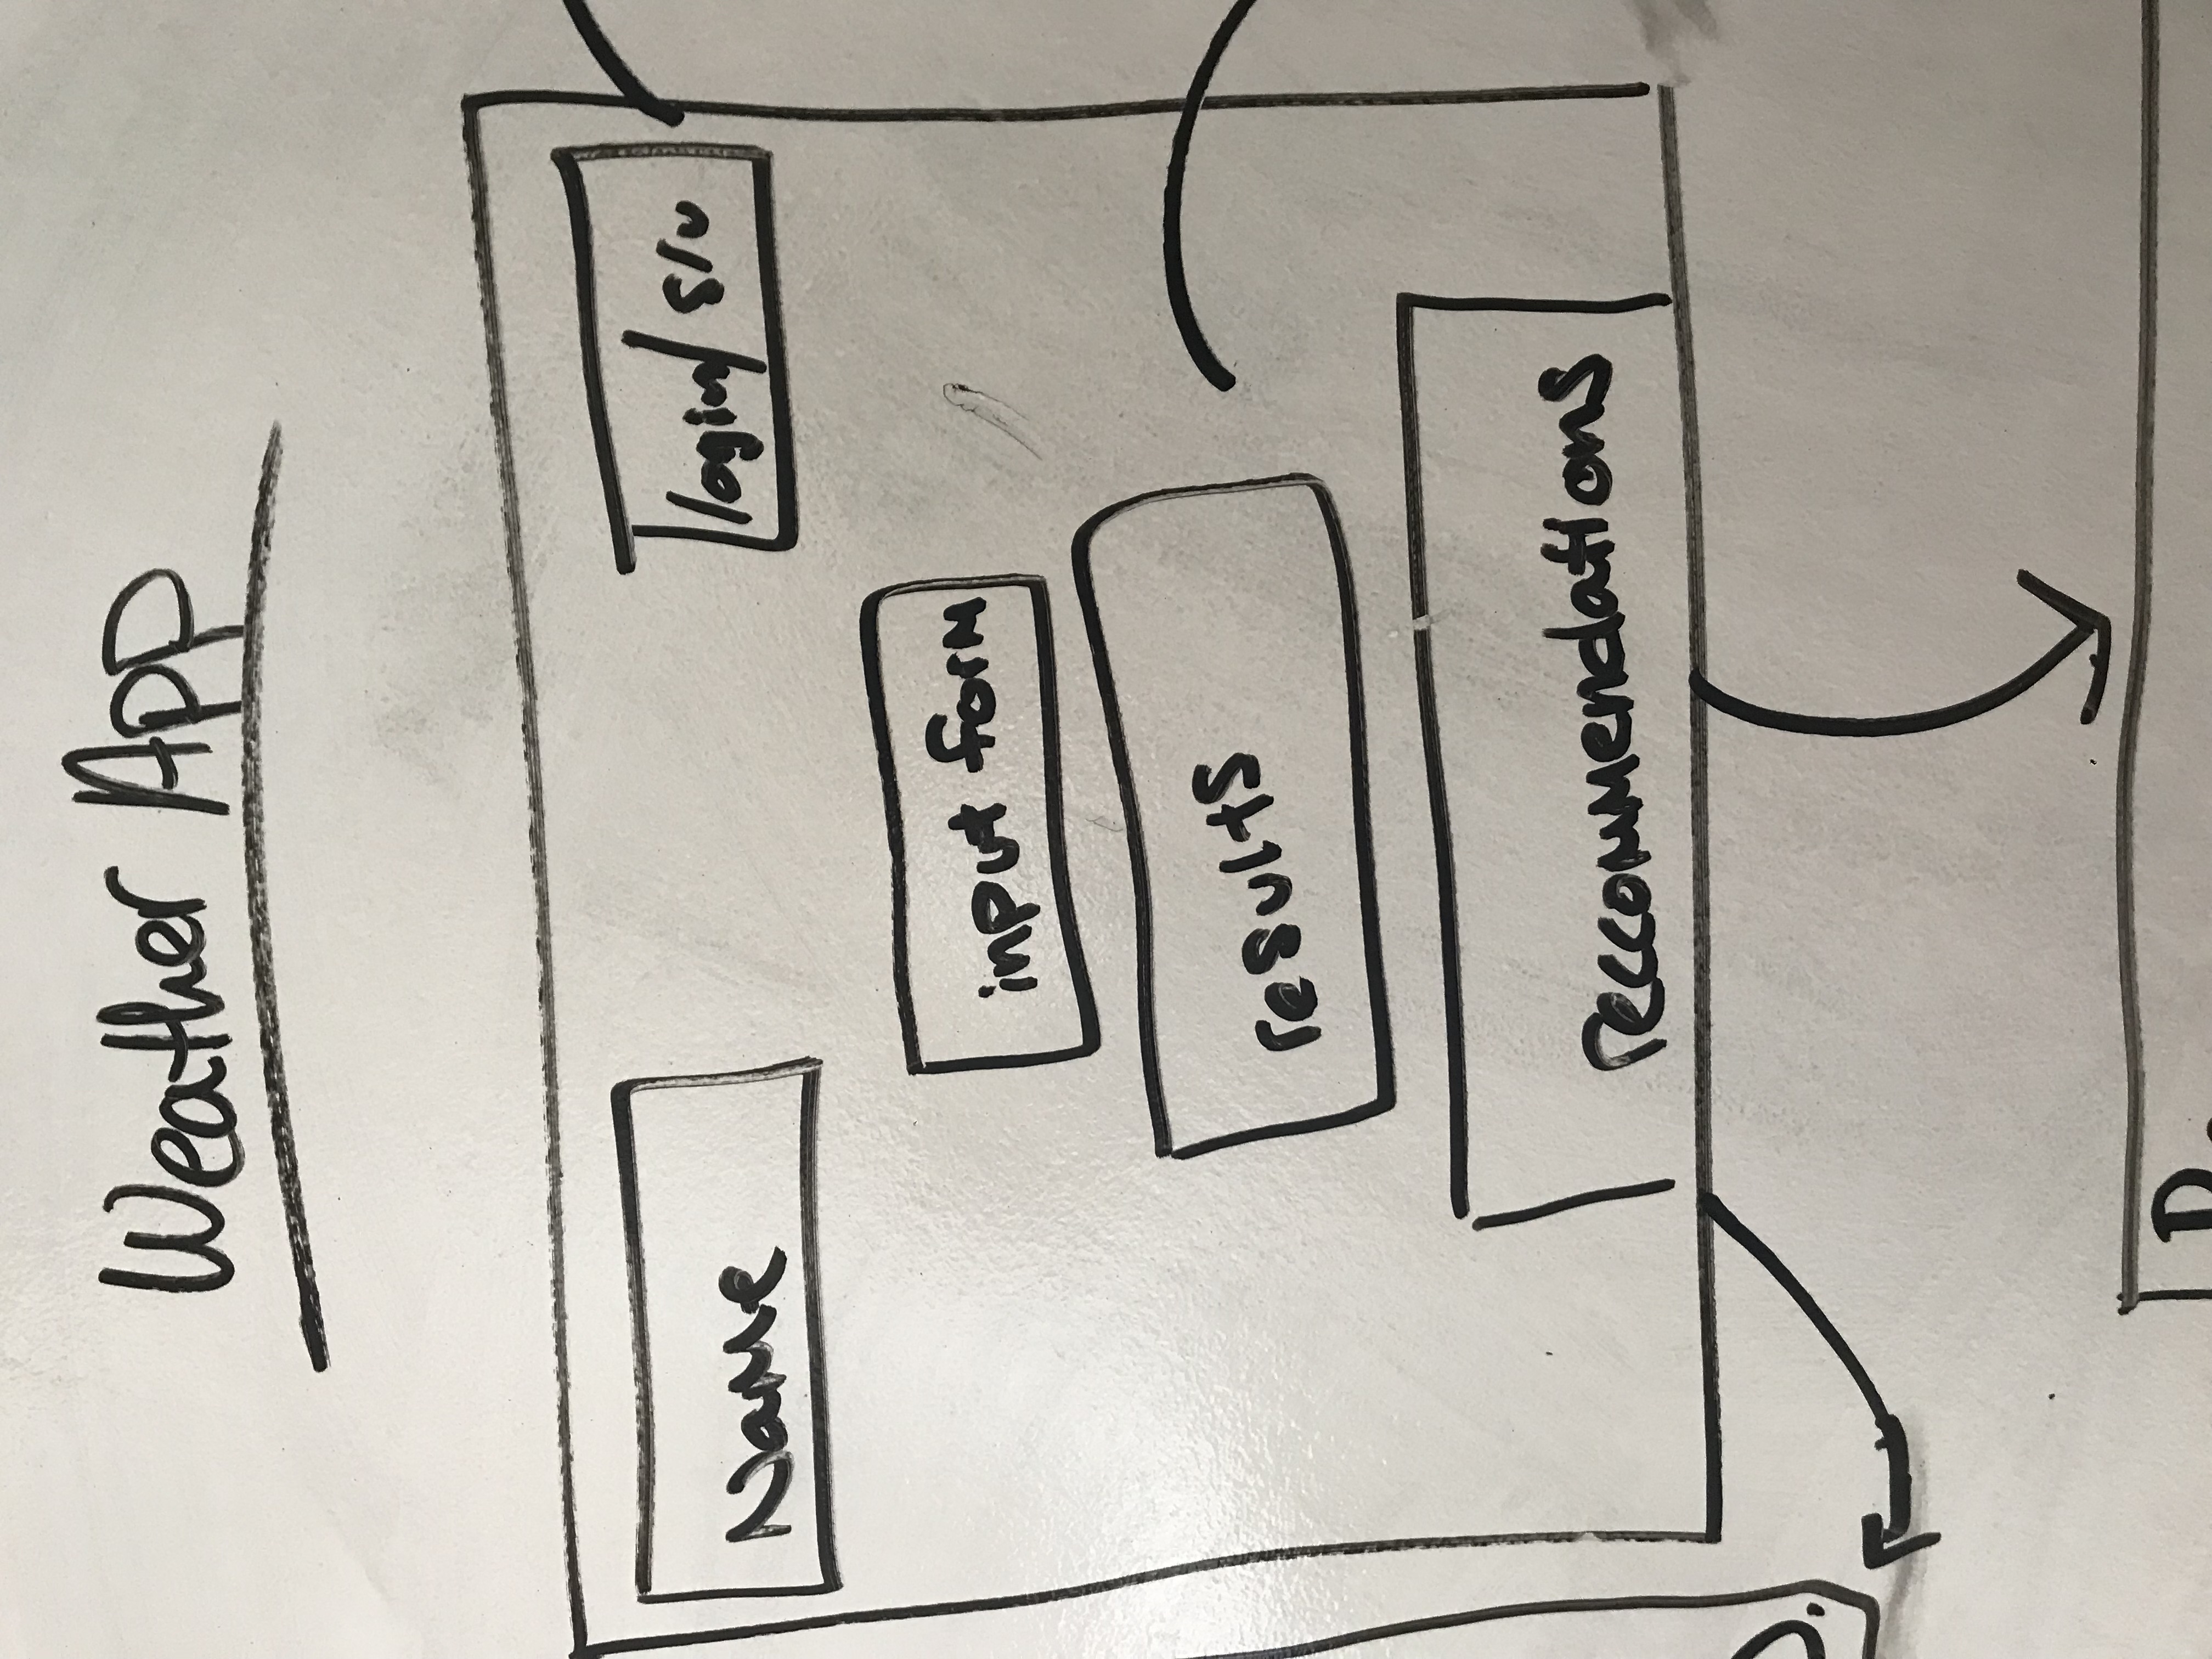 Weather App
Name
login/ s/u
input form
results
reccommendations